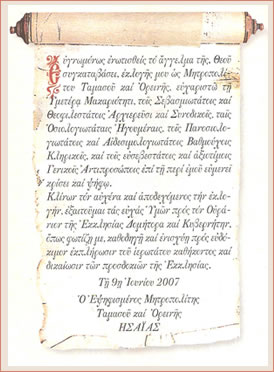 Εὐγνωμόνως ἐνωτισθεὶς τὸ ἄγγελμα τῆς, Θεοῦ
συγκαταβάσει, ἐκλογῆς μου ὡς Μητροπολί-
του Ταμασοῦ καὶ Ὀρεινῆς, εὐχαριστῶ τῇ
Ὑμετέρᾳ Μακαριότητι, τοῖς Σεβασμιωτάτοις καὶ
Θεοφιλεστάτοις Ἀρχιερεῦσι καὶ Συνοδικοῖς, τοῖς
Ὁσιολογιωτάτοις Ἡγουμένοις, τοῖς Πανοσιολο-
γιωτάτοις καὶ Αἰδεσιμολογιωτάτοις Βαθμούχοις
Κληρικοῖς, καὶ τοῖς εὐσεβεστάτοις καὶ ἀξιοτίμοις
Γενικοῖς Ἀντιπροσώποις ἐπὶ τῇ περὶ ἐμοῦ εὐμενεῖ
κρίσει καὶ ψήφῳ.
Κλίνων τὸν αὐχένα καὶ ἀποδεχόμενος τὴν ἐκλο-
γήν, ἐξαιτοῦμαι τὰς εὐχὰς Ὑμῶν πρὸς τὸν Οὐρά-
νιον τῆς Ἐκκλησίας Δομήτορα καὶ Κυβερνήτην,
ὅπως φωτίζῃ με, καθοδηγῇ καὶ ἐνισχύῃ πρὸς εὐδό-
κιμον ἐκπλήρωσιν τοῦ ἱερωτάτου καθήκοντος καὶ
δικαίωσιν τῶν προσδοκιῶν τῆς Ἐκκλησίας.
Τῇ 9ῃ Ἰουνίου 2007
Ὁ Ἐψηφισμένος Μητροπολίτης
Ταμασοῦ καὶ Ὀρεινῆς
ΗΣΑΪΑΣ